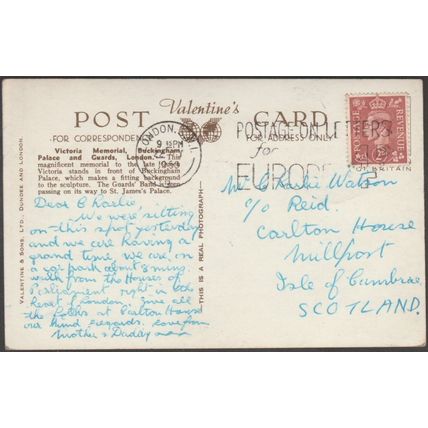 Valentine's
POST CARD
FOR CORRESPONDENCE
FOR ADDRESS ONLY
Victoria Memorial, Buckingham
Palace and Guards, London. This
magnificent memorial to the late
Victoria stands in front of Buckingham
Palace, which makes a fitting background
to the sculpture. The Guards' Band is seen
passing on its way to St. James's Palace.
LONDON
9 15PM
POSTAGE ON LETTERS
for
EUROPE
POSTAGE
REVENUE
VALENTINE & SONS, LTD., DUNDEE AND LONDON.
THIS IS A REAL PHOTOGRAPH
Dear Charlie,
We were sitting
on this spot yesterday
and we are having a
grand time. We are on
a car park about 3 mins
walk from the Houses of
Parliament right in the
heart of London. Give all
the folks at Carlton House
our kind regards. Love from
Mother & Daddy
Mr Charlie Watson
c/o Reid.
Carlton House
Millport
Isle of Cumbrae
SCOTLAND.